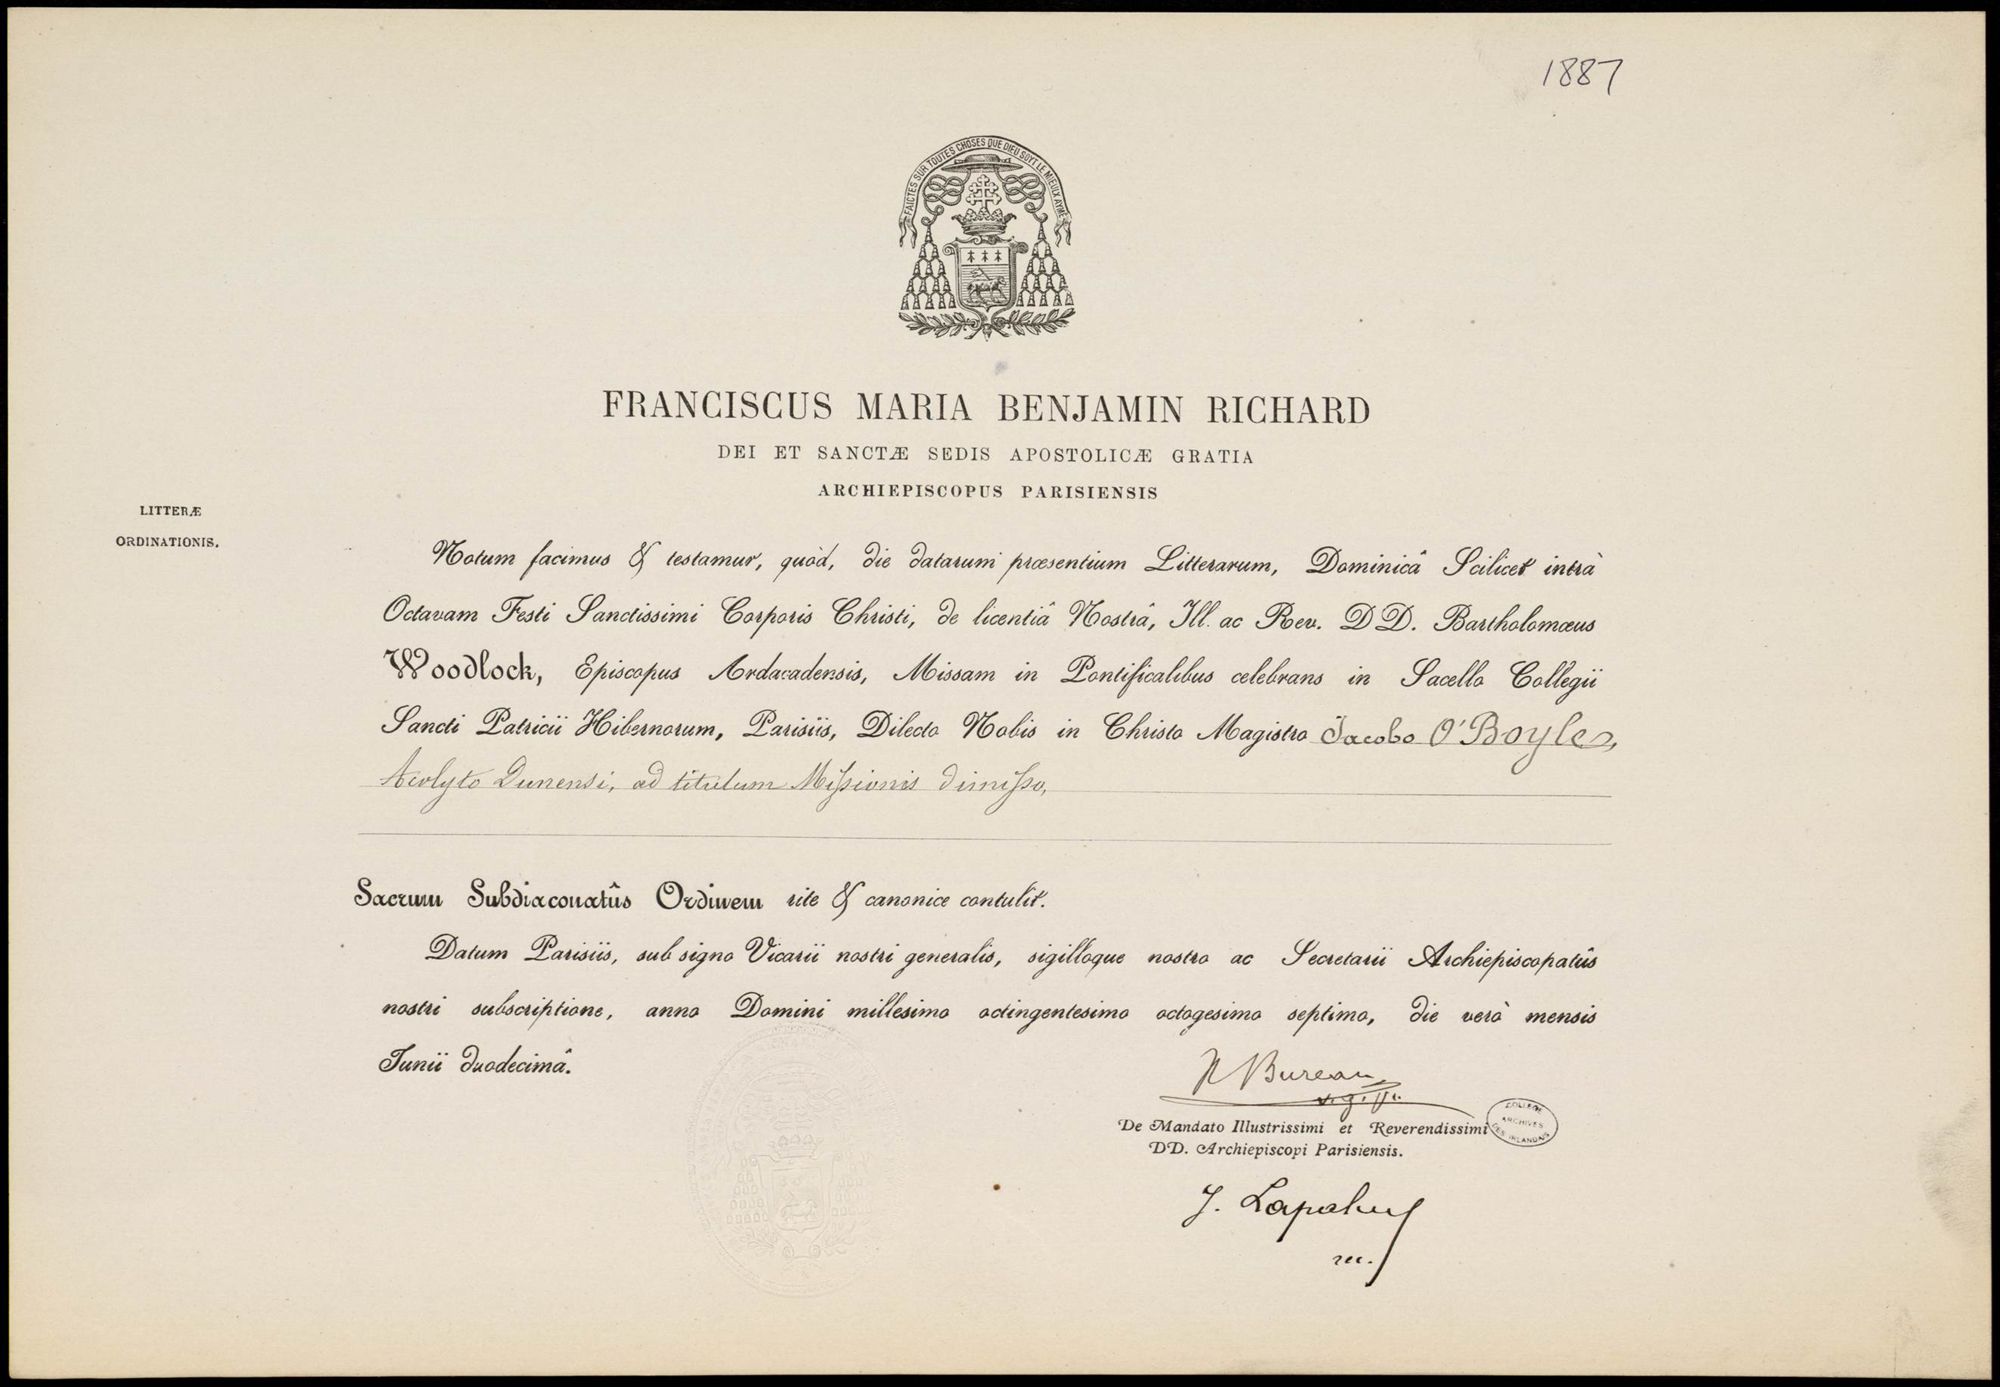 1887
FAICTES SUR TOUTES CHOSES QUE DIEU SOYT LE MIEUX AYMÉ
FRANCISCUS MARIA BENJAMIN RICHARD
DEI ET SANCTÆ SEDIS APOSTOLICÆ GRATIA
ARCHIEPISCOPUS PARISIENSIS
LITTERÆ
ORDINATIONIS.
Notum facimus & testamur, quòd, die datarum præsentium Litterarum, Dominicâ Scilicet intrà
Octavam Festi Sanctissimi Corporis Christi, de licentiâ Nostrâ, Ill. ac Rev. DD. Bartholomæus
Woodlock, Episcopus Ardacadensis, Missam in Pontificalibus celebrans in Sacello Collegii
Sancti Patricii Hibernorum, Parisiis, Dilecto Nobis in Christo Magistro Jacobo O'Boyle,
Acolyto Dunensi, ad titulum Missionis dimisso,
Sacrum Subdiaconatûs Ordinem rite & canonice contulit.
Datum Parisiis, sub signo Vicarii nostri generalis, sigilloque nostro ac Secretarii Archiepiscopatûs
nostri subscriptione, anno Domini millesimo octingentesimo octogesimo septimo, die verò mensis
Junii duodecimâ.
Bureau
De Mandato Illustrissimi et Reverendissimi
DD. Archiepiscopi Parisiensis.
COLLEGE
ARCHIVES
DES IRLANDAIS
J.